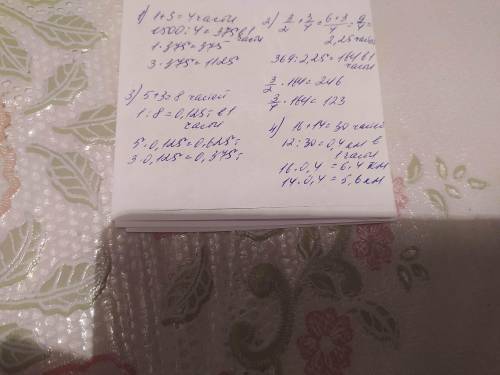 1) 1+3=4 части
1500:4=375 в 1
части
1·375=375
3·375=1125
2) 3/2+3/4=6+3/4=9/4=
2,25 частей
369:2,25=164 в 1
части
3/2·164=246
3/4·164=123
3) 5+3=8 частей
1:8=0,125т в 1
части
5·0,125=0,625т
3·0,125=0,375т
4) 16+14=30 частей
12:30=0,4км в
1 части
16·0,4=6,4км
14·0,4=5,6км